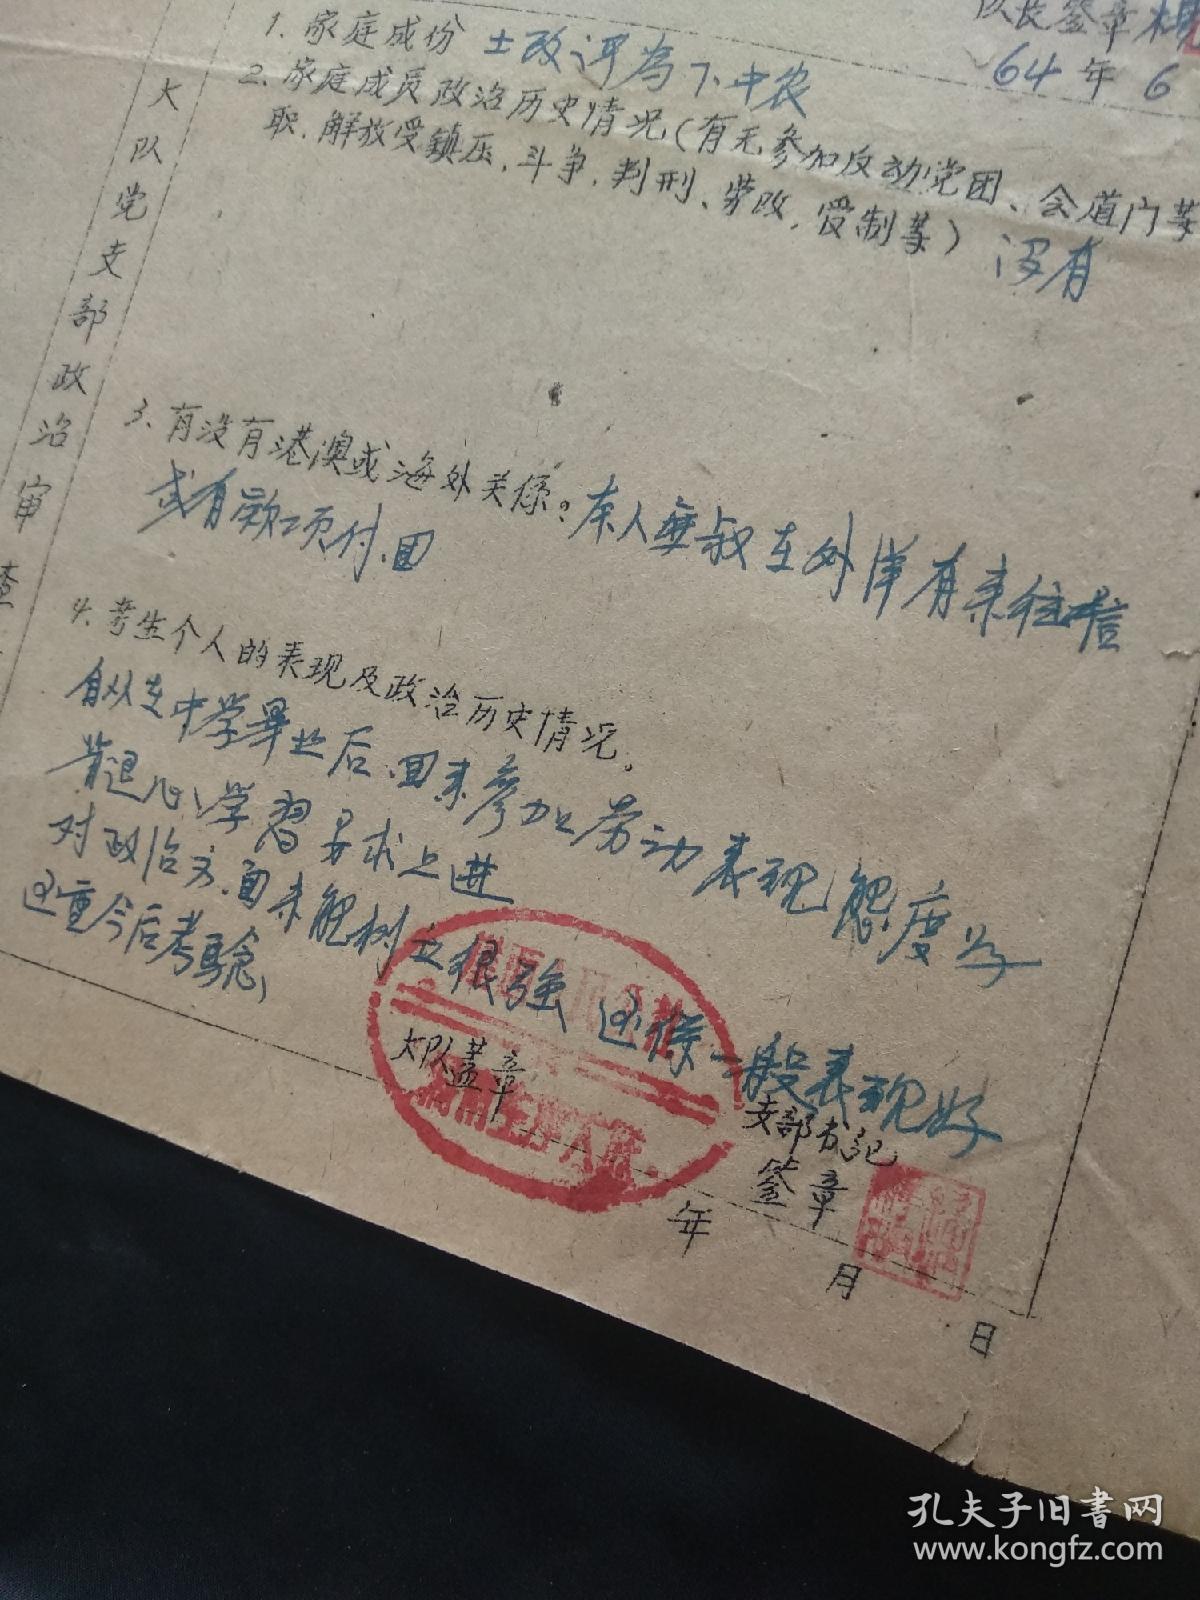 队长签章
64年6
大队党支部政治审查
1.家庭成份 土改评为下中农
2.家庭成员政治历史情况(有无参加反动党团、会道门等
职.解放受鎮压.斗争.判刑、劳改.受制等) 没有
3、有没有港澳或海外关係:本人 叔在外洋有来往信
或有款项付.回
4.考生个人的表现及政治历史情况。
自从在中学畢业后.回来参加劳动表现態度好
肯退心学習要求上进
对政治方.面未能树立很強 还係一般表现好
还重今后考驗
大队盖章
支部书记
签章
年 月 日
孔夫子旧书网
www.kongfz.com